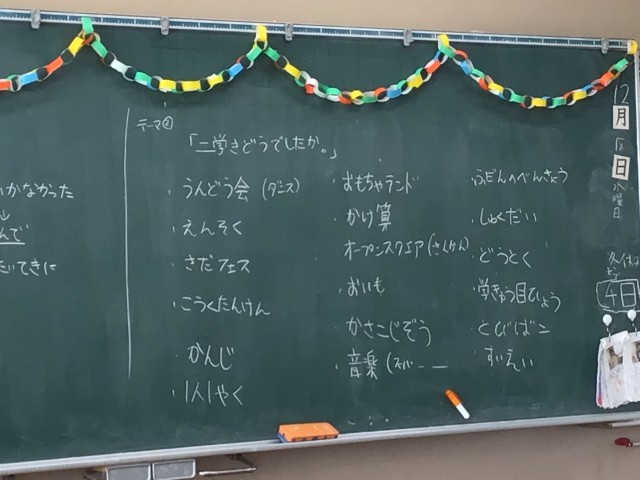 いかなかった
↓
んで
たいてきに
テーマ②
「二学きどうでしたか。」
・うんどう会 (ダンス)
・えんそく
・さだフェス
・こうくたんけん
・かんじ
・1人1やく
・おもちゃランド
・かけ算
オープンスクエア(さんけん)
・おいも
・かさこじぞう
・音楽 (スーパー
・ふだんのべんきょう
・しゅくだい
・どうとく
・学きゅう目ひょう
・とびばこ
・すいえい
12
月
日
水曜日
冬休み
4日